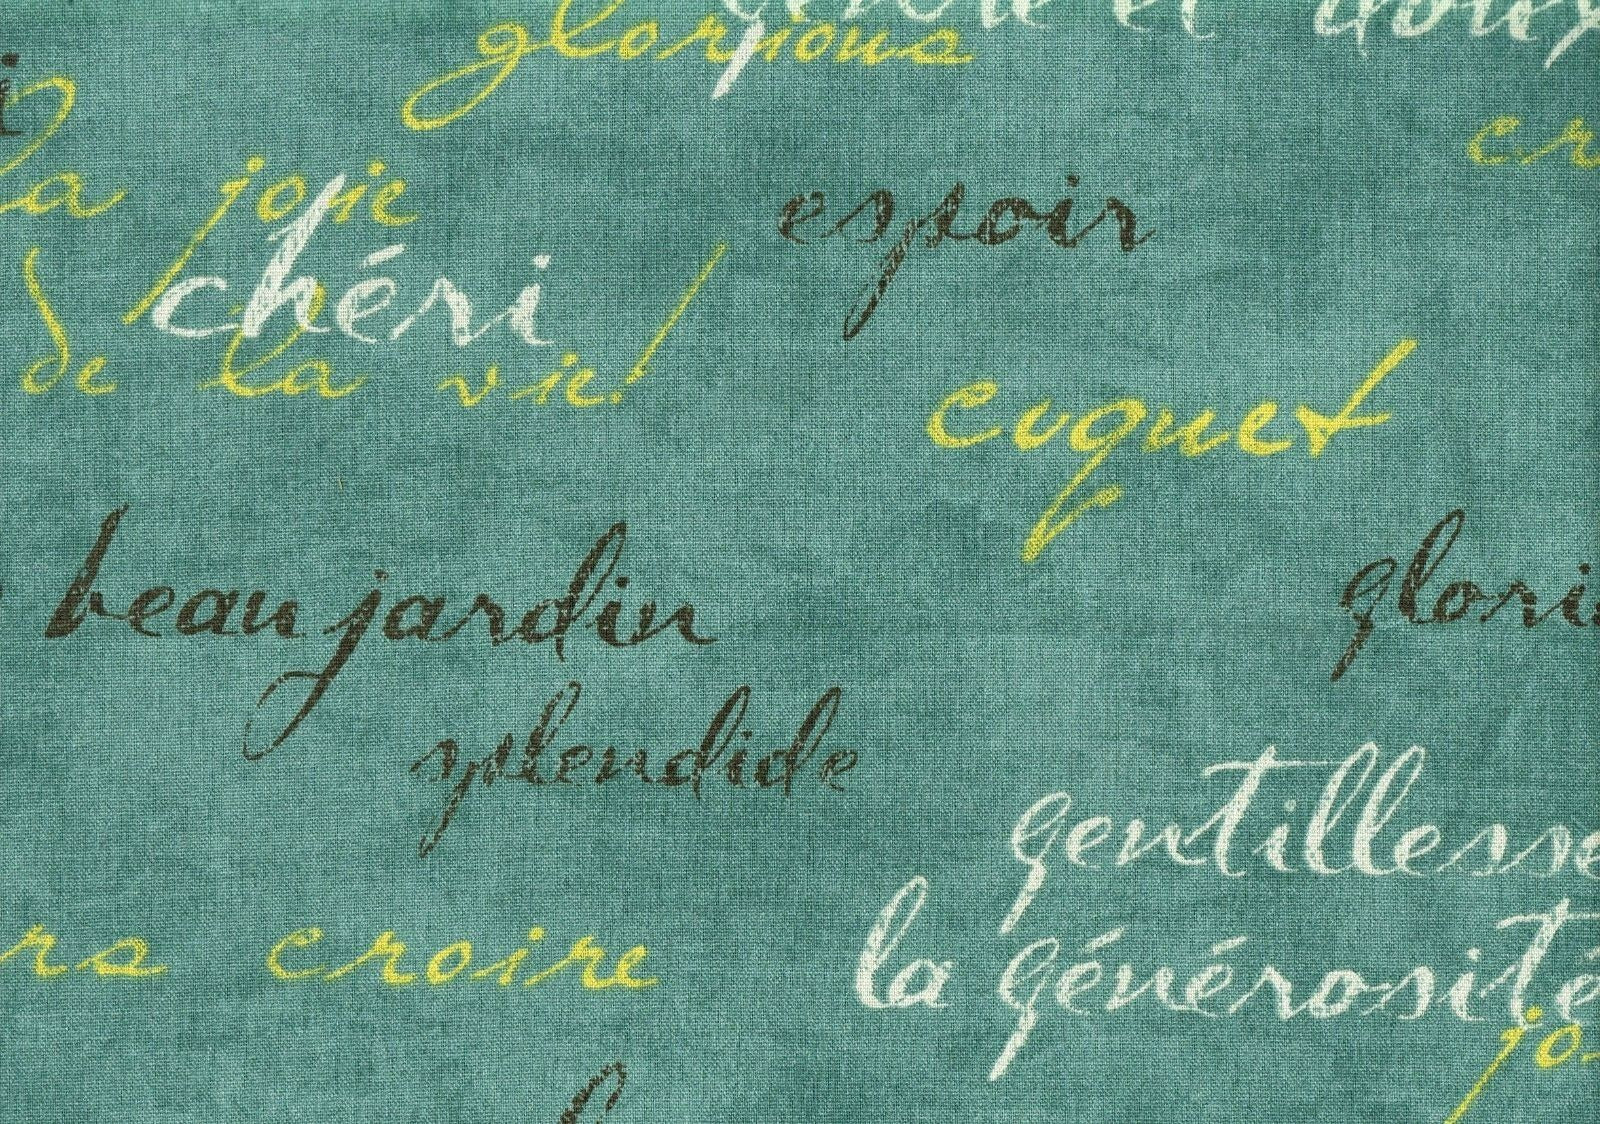 glorious
et doux
la joie
chéri
de la vie!
espoir
coquet
beau jardin
splendide
gentillesse
la générosité
croire